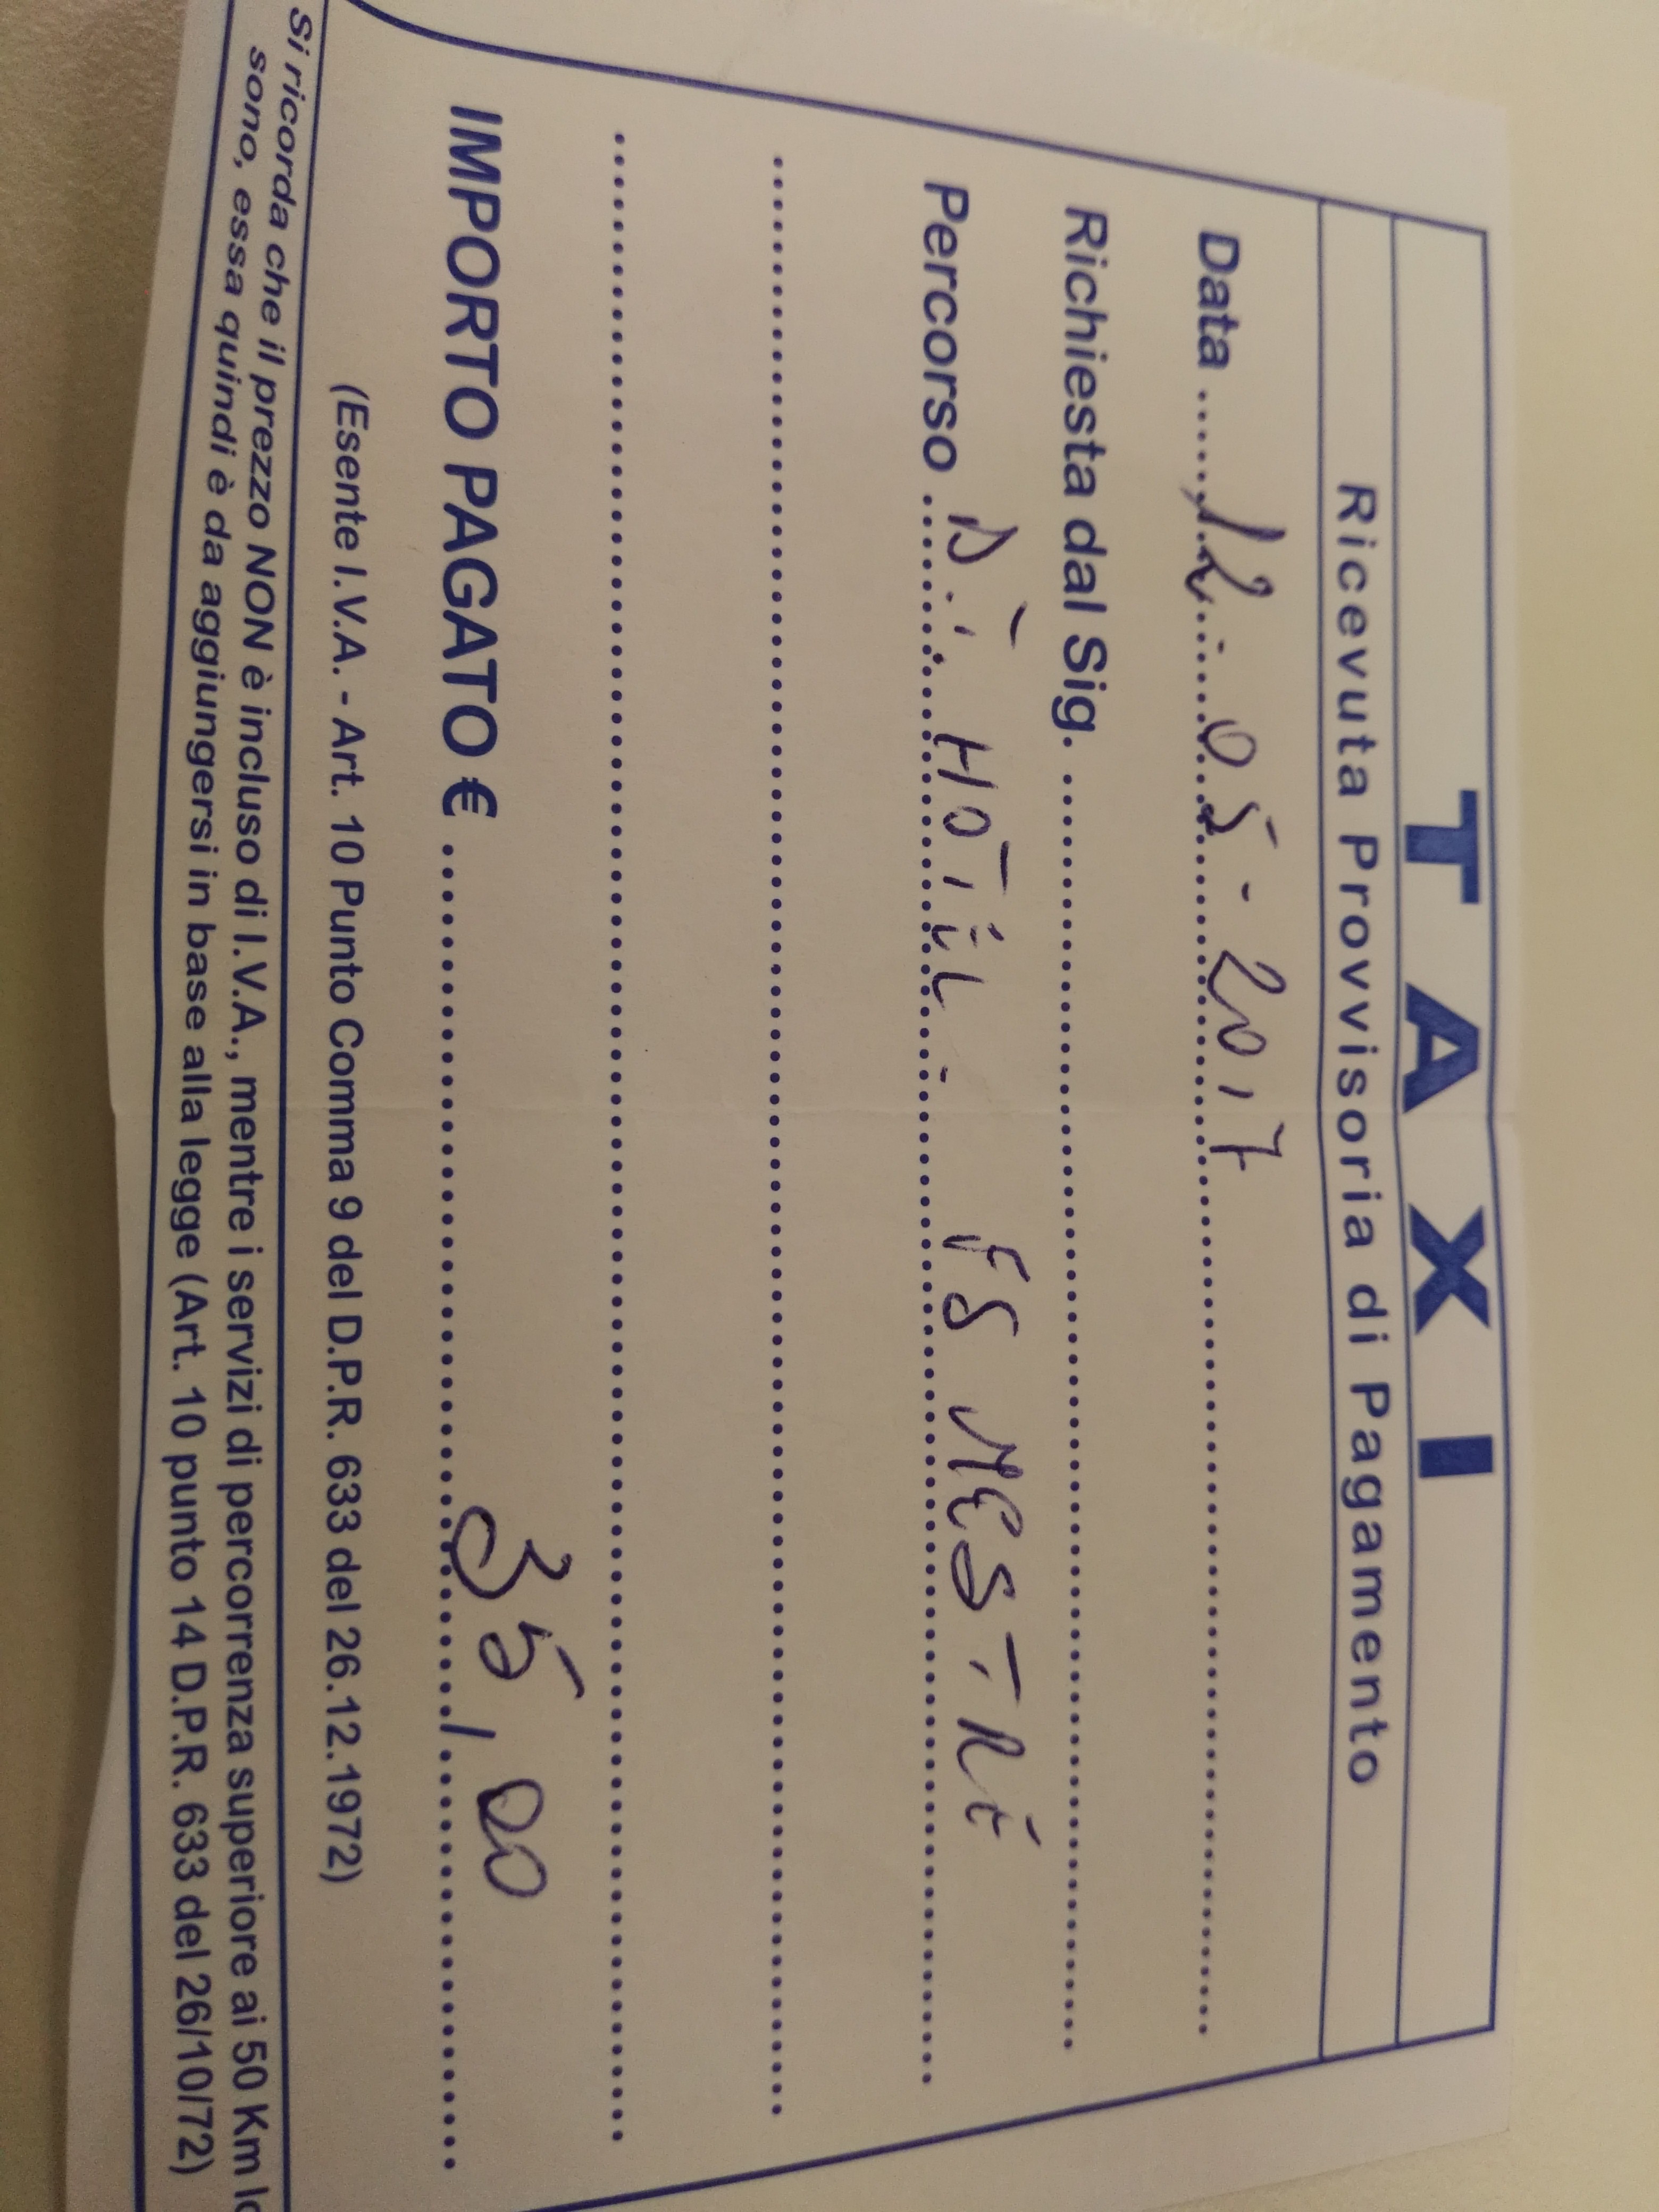 TAXI
Ricevuta Provvisoria di Pagamento
Data ...... 12 - 05 - 2017 ......
Richiesta dal Sig. ......
Percorso ...... HOTEL - FS MESTRE ......
IMPORTO PAGATO € ...... 35,00 ......
(Esente I.V.A. - Art. 10 Punto Comma 9 del D.P.R. 633 del 26.12.1972)
Si ricorda che il prezzo NON è incluso di I.V.A., mentre i servizi di percorrenza superiore ai 50 Km lo
sono, essa quindi è da aggiungersi in base alla legge (Art. 10 punto 14 D.P.R. 633 del 26/10/72)